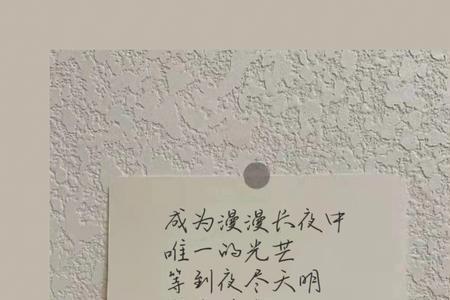 成为漫漫长夜中
唯一的光芒
等到夜尽天明